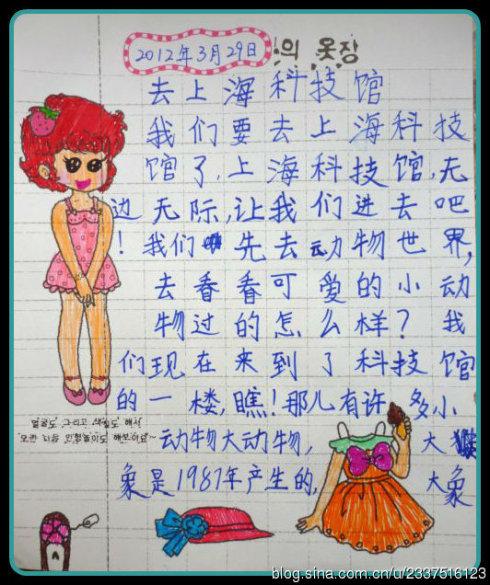 2012年3月29日 의 옷장
去上海科技馆
我们要去上海科技
馆了,上海科技馆,无
边无际,让我们进去吧
!我们先去动物世界,
去看看可爱的小动
物过的怎么样?我
们现在来到了科技馆
的一楼,瞧!那儿有许多小
动物大动物,大
象是1987年产生的,大象
얼굴도 그리고 색칠도 해서
blog.sina.com.cn/u/2337516123